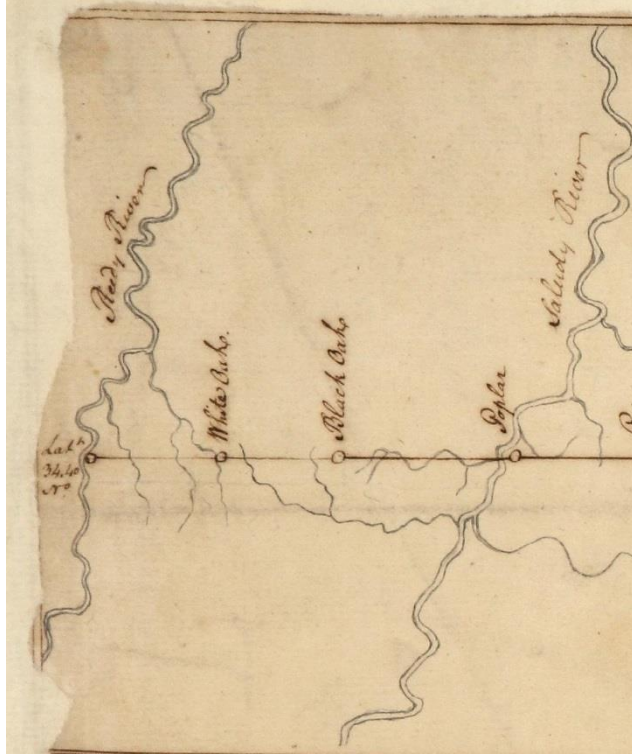 Reedy River
Saludy River
White Oaks.
Black Oaks
Poplar
Lat.h
34.40
No